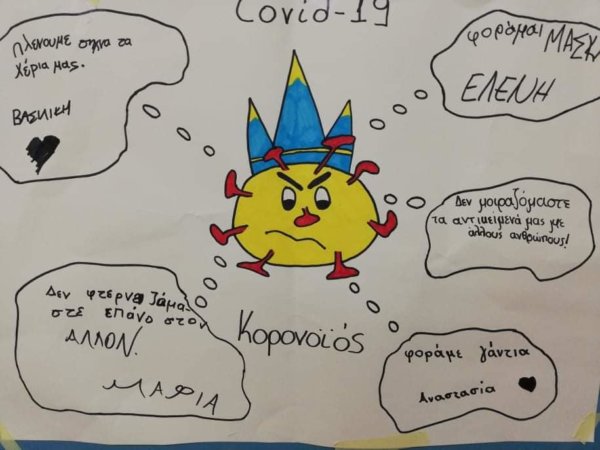 Covid-19
Πλένουμε συχνα τα
χέρια μας.
ΒΑΣΙΛΙΚΗ
φοράμαι ΜΑΣΚ
ΕΛΕΝΗ
Δεν μοιραζόμαστε
τα αντικειμενά μας με
άλλους ανθρώπους!
Δεν φτερνιζόμα-
στε επάνο στον
ΑΛΛΟΝ.
ΜΑΡΙΑ
Κορονοϊός
φοράμε γάντια
Αναστασία